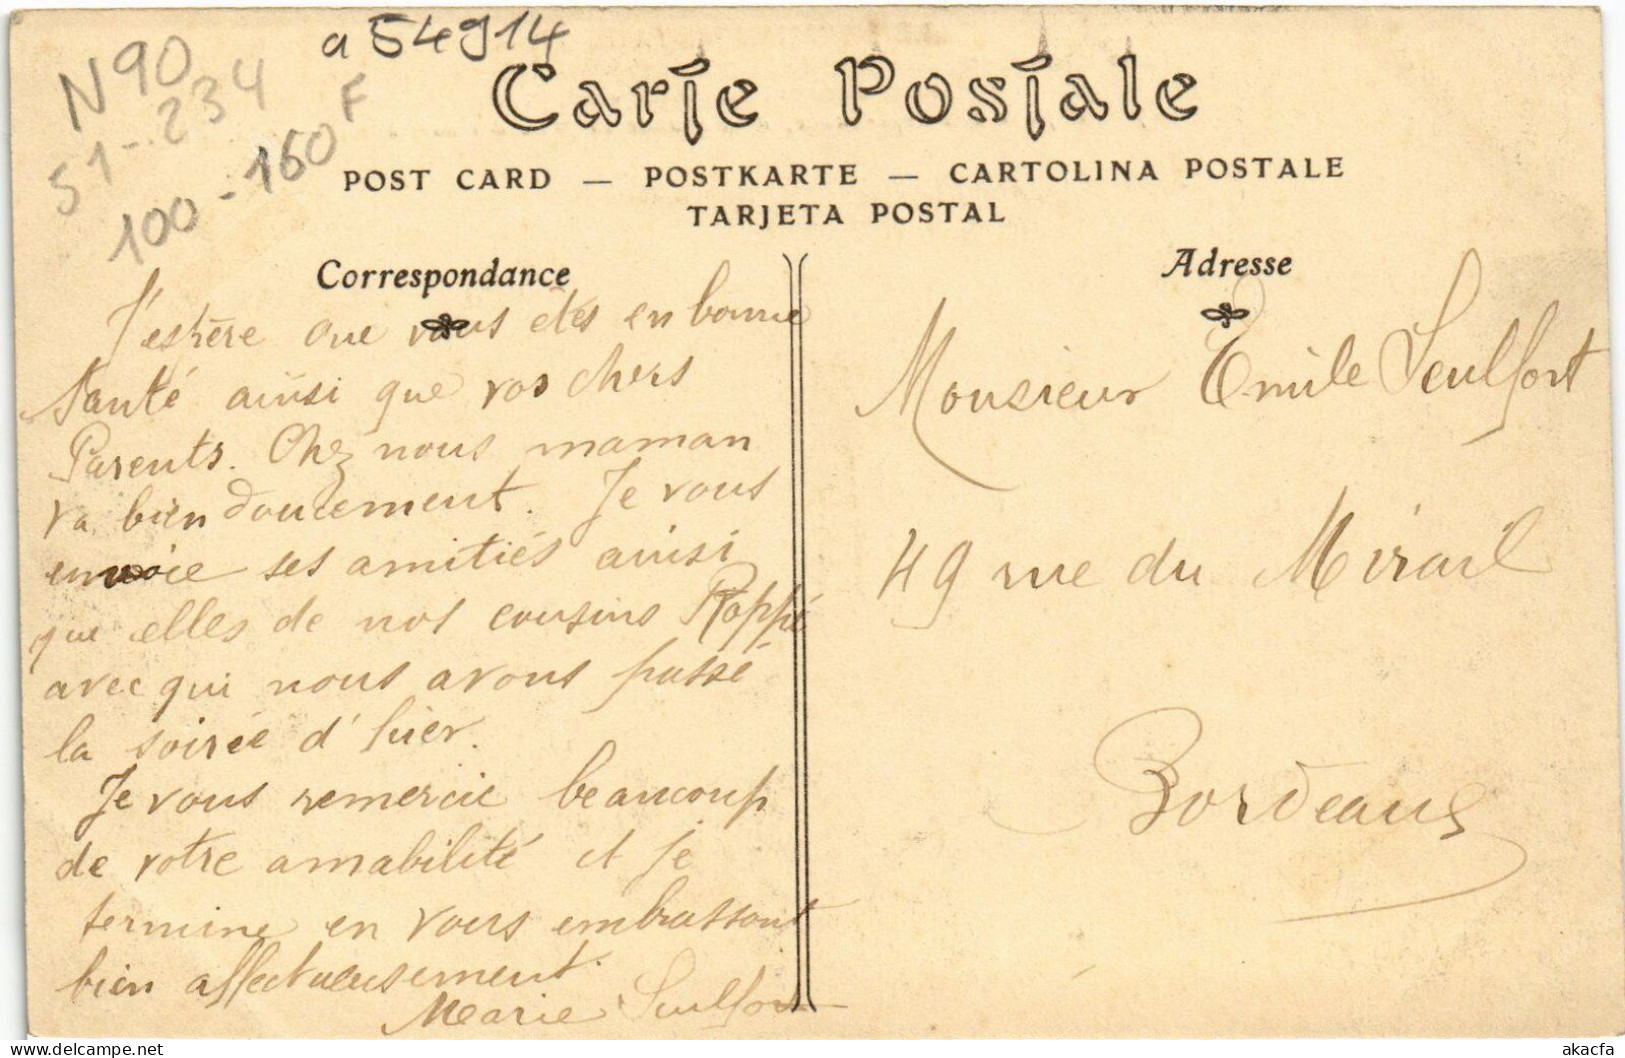 a 54914
N90
51-234
100-160F
Carte Postale
POST CARD — POSTKARTE — CARTOLINA POSTALE
TARJETA POSTAL
Correspondance
J'espère que vous etes en bonne
Santé ainsi que vos chers
Parents. Chez nous maman
va bien doucement. Je vous
envoie ses amitiés ainsi
que elles de nos cousins Roppé
avec qui nous avons passé
la soirée d'hier.
Je vous remercie beaucoup
de votre amabilité et je
termine en vous embrassant
bien affectueusement.
Marie Seulfort
Adresse
Monsieur Emile Seulfort
49 rue du Mirail
Bordeaux
akacfa